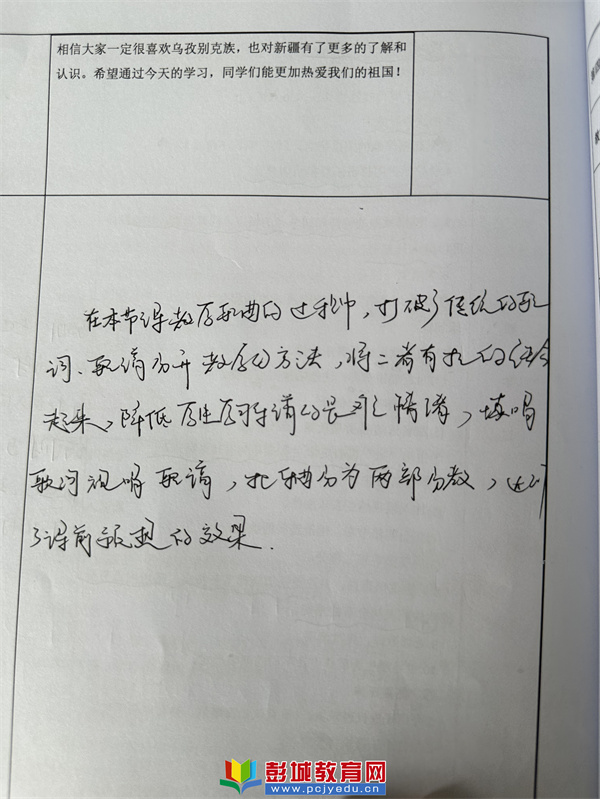 相信大家一定很喜欢乌孜别克族，也对新疆有了更多的了解和
认识。希望通过今天的学习，同学们能更加热爱我们的祖国！
在本节课教唱歌曲的过程中，打破了传统的歌
词、歌谱分开教唱的方法，将二者有机的结合
起来，降低学生学习歌谱的畏难情绪，填唱
歌词视唱歌谱，把歌曲分为两部分教，达到
了课前预想的效果.
彭城教育网
www.pcjyedu.cn